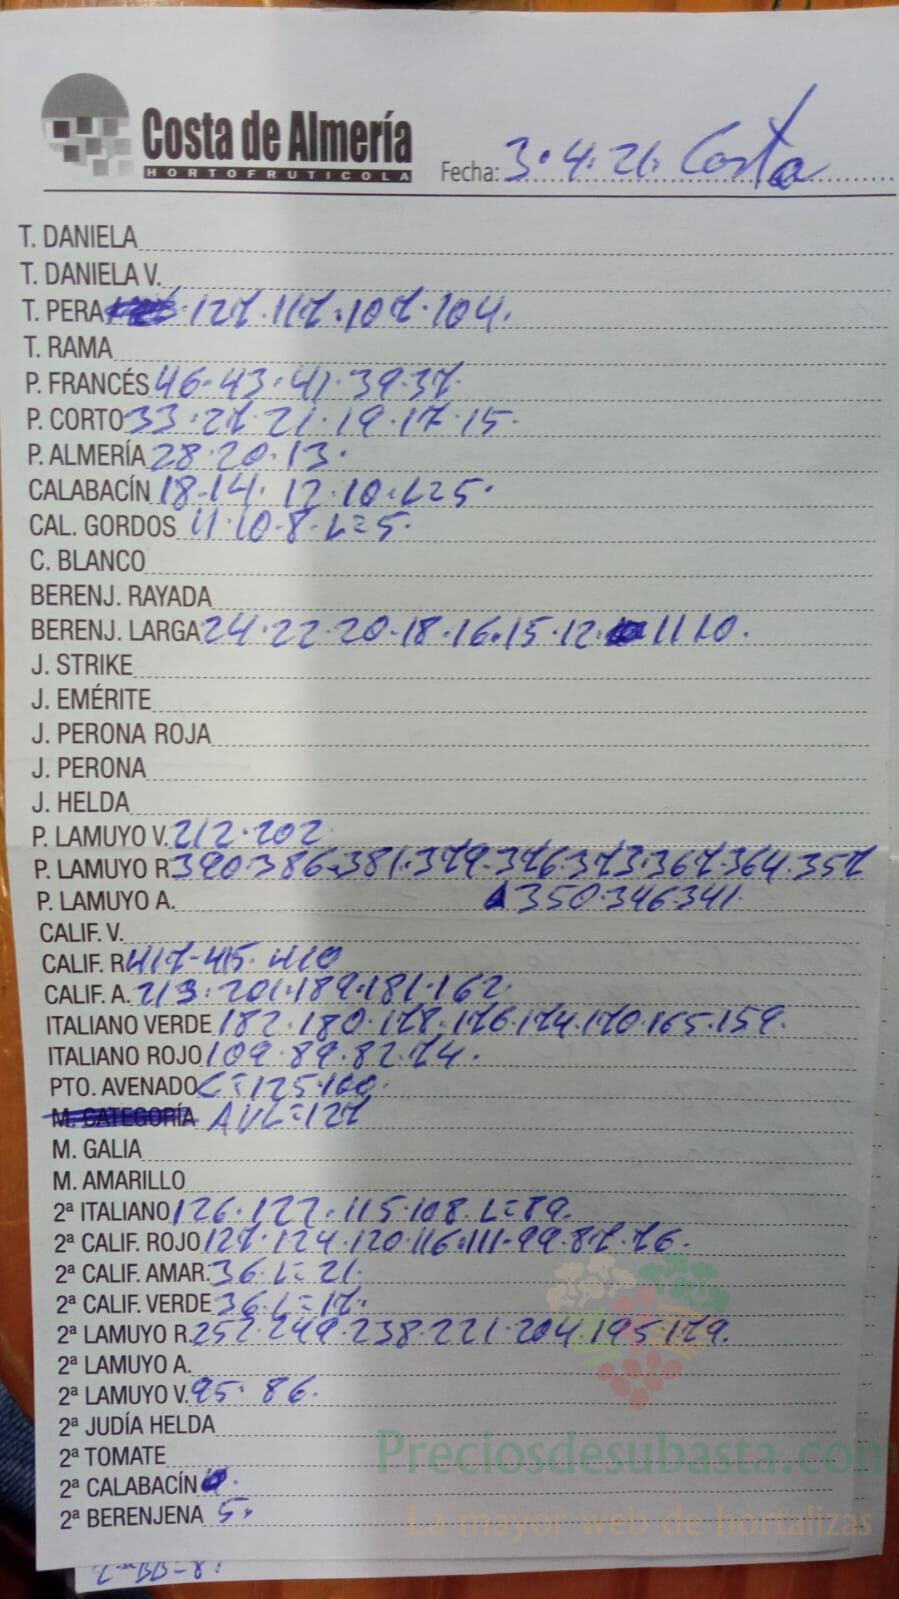 Costa de Almería
HORTOFRUTICOLA
Fecha: 3.4.21. Costa
T. DANIELA
T. DANIELA V.
T. PERA 127.117.107.104.
T. RAMA
P. FRANCÉS 46.43.41.39.37.
P. CORTO 33.27.21.19.17.15.
P. ALMERÍA 28.20.13.
CALABACÍN 18.14.12.10.L=5.
CAL. GORDOS 11.10.8.L=5.
C. BLANCO
BERENJ. RAYADA
BERENJ. LARGA 24.22.20.18.16.15.12. 11 10.
J. STRIKE
J. EMÉRITE
J. PERONA ROJA
J. PERONA
J. HELDA
P. LAMUYO V. 212.202
P. LAMUYO R. 390.386.381.379.376.373.367.364.357
P. LAMUYO A. 350.346.341.
CALIF. V.
CALIF. R. 417.415.410
CALIF. A. 213.201.189.181.162.
ITALIANO VERDE 182.180.178.176.174.170.165.159.
ITALIANO ROJO 109.89.82.74.
PTO. AVENADO C=125.160.
M. CATEGORÍA AVL=127
M. GALIA
M. AMARILLO
2ª ITALIANO 126.122.115.108.L=89.
2ª CALIF. ROJO 127.124.120.116.111.99.87.76.
2ª CALIF. AMAR. 36.L=21.
2ª CALIF. VERDE 36.L=17.
2ª LAMUYO R. 252.249.238.221.204.195.179.
2ª LAMUYO A.
2ª LAMUYO V. 95.86.
2ª JUDÍA HELDA
2ª TOMATE
2ª CALABACÍN
2ª BERENJENA 5.
Preciosdesubasta.com
La mayor web de hortalizas